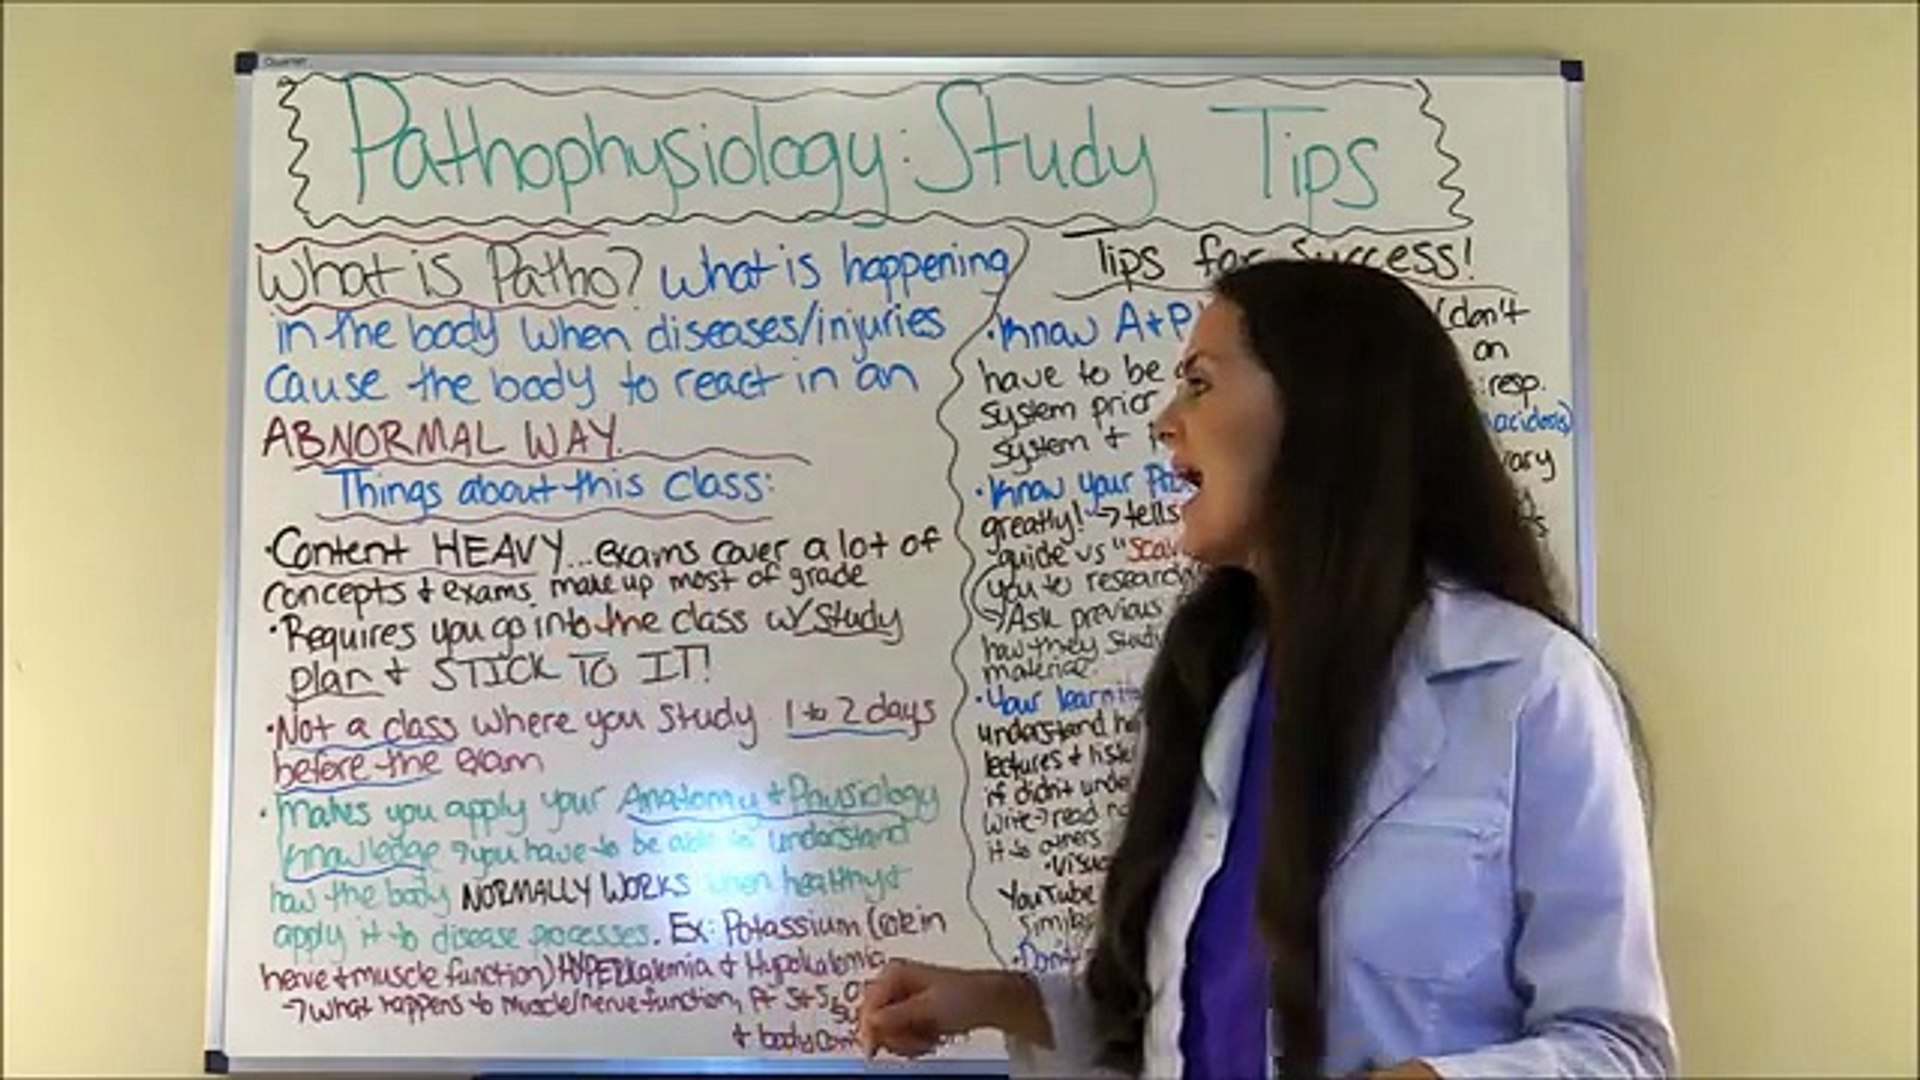 Quartet
Pathophysiology: Study Tips
What is Patho? What is happening
in the body when diseases/injuries
cause the body to react in an
ABNORMAL WAY.
Things about this class:
·Content HEAVY...exams cover a lot of
concepts + exams make up most of grade
·Requires you go into the class w/ study
plan + STICK TO IT!
·Not a class where you study 1 to 2 days
before the exam
·Makes you apply your Anatomy + Physiology
knowledge → you have to be able to understand
how the body NORMALLY WORKS when healthy +
apply it to disease processes. Ex: Potassium (role in
nerve + muscle function) HYPERkalemia + Hypokalemia
→ what happens to muscle/nerve function, pt s+s,
+ body
Tips for Success!
·Know A+P (don't
have to be on
system prior resp.
system + acidosis)
·Know your
greatly! → tells
guide vs
you to research
→Ask previous
how they study
material.
·Your learning
understand
lectures +
if didn't
write → read
it to others
YouTube
·Don't